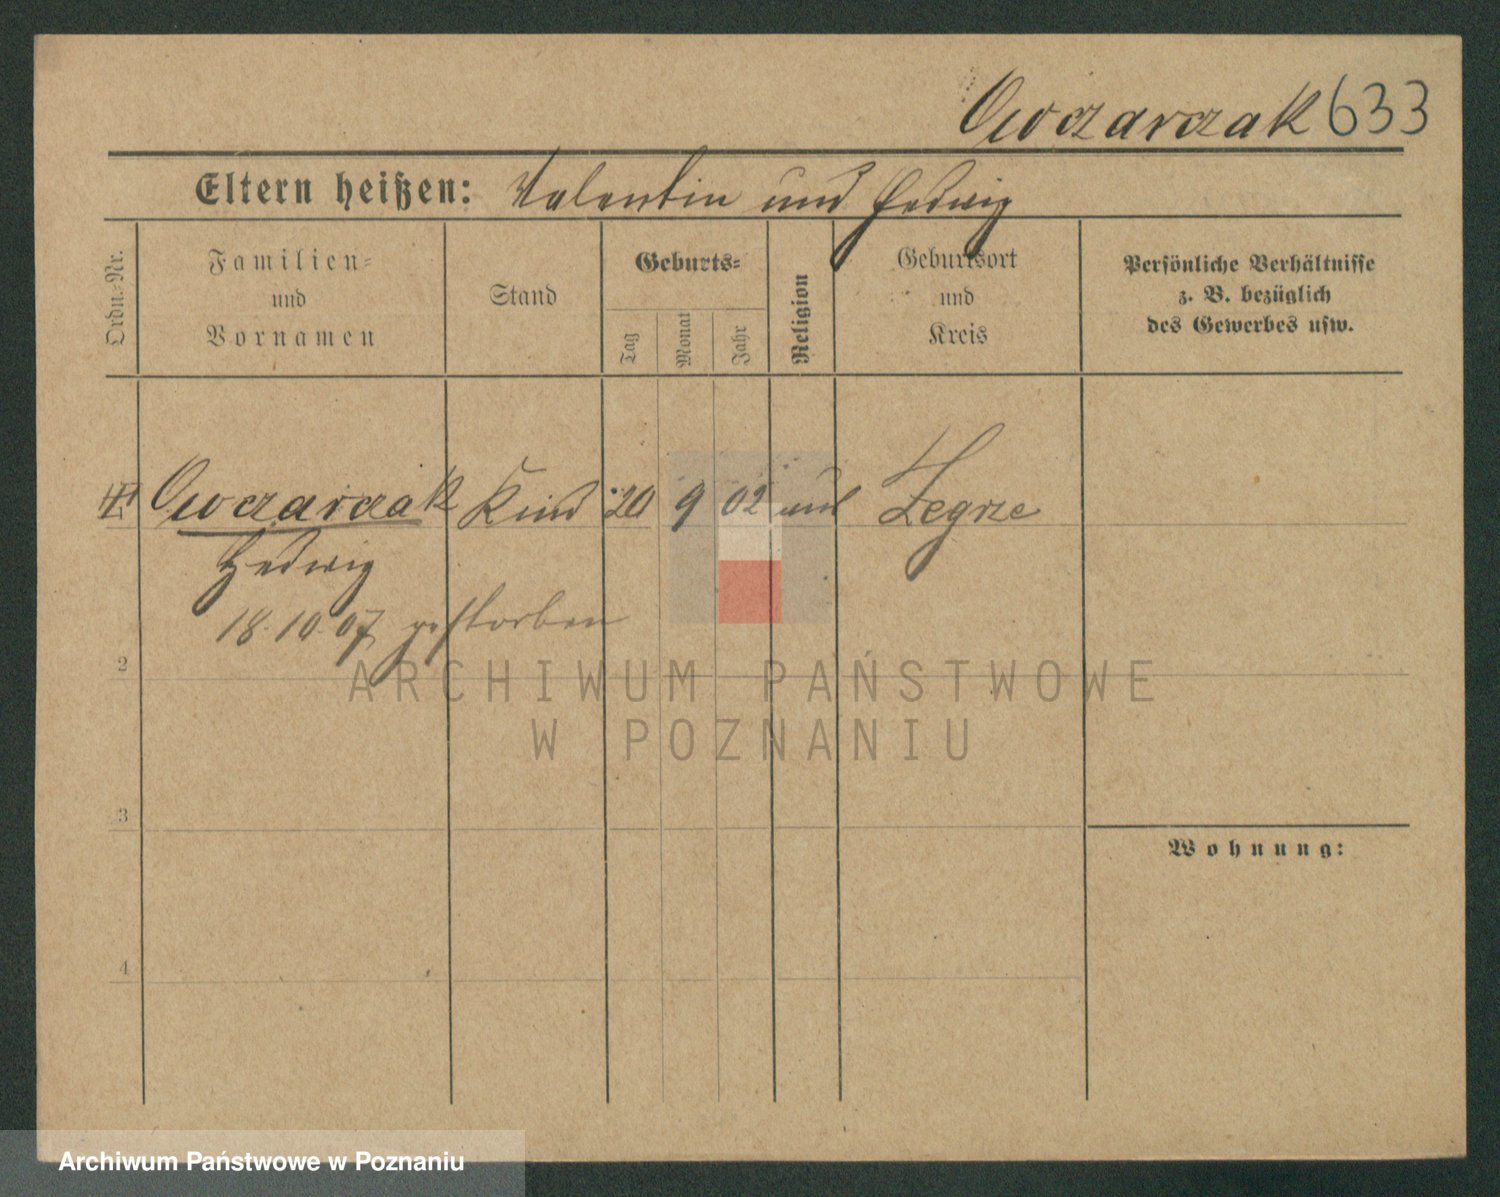 Owczarczak 633
Eltern heißen: Valentin und Hedwig
Ordn.-Nr.
Familien-
und
Vornamen
Stand
Geburts-
Tag
Monat
Jahr
Religion
Geburtsort
und
Kreis
Persönliche Verhältnisse
z. B. bezüglich
des Gewerbes usw.
Owczarczak Kind 20 9 02 Zegrze
Hedwig
18. 10. 07 gestorben
2
3
4
Wohnung:
ARCHIWUM PAŃSTWOWE
W POZNANIU
Archiwum Państwowe w Poznaniu